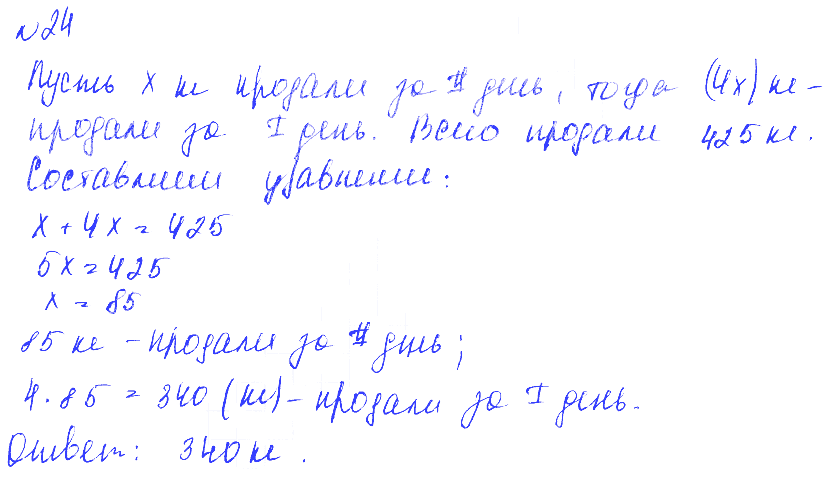 №24
Пусть x кг продали за II день, тогда (4x) кг -
продали за I день. Всего продали 425 кг.
Составим уравнение:
x + 4x = 425
5x = 425
x = 85
85 кг - продали за II день;
4 · 85 = 340 (кг) - продали за I день.
Ответ: 340 кг.